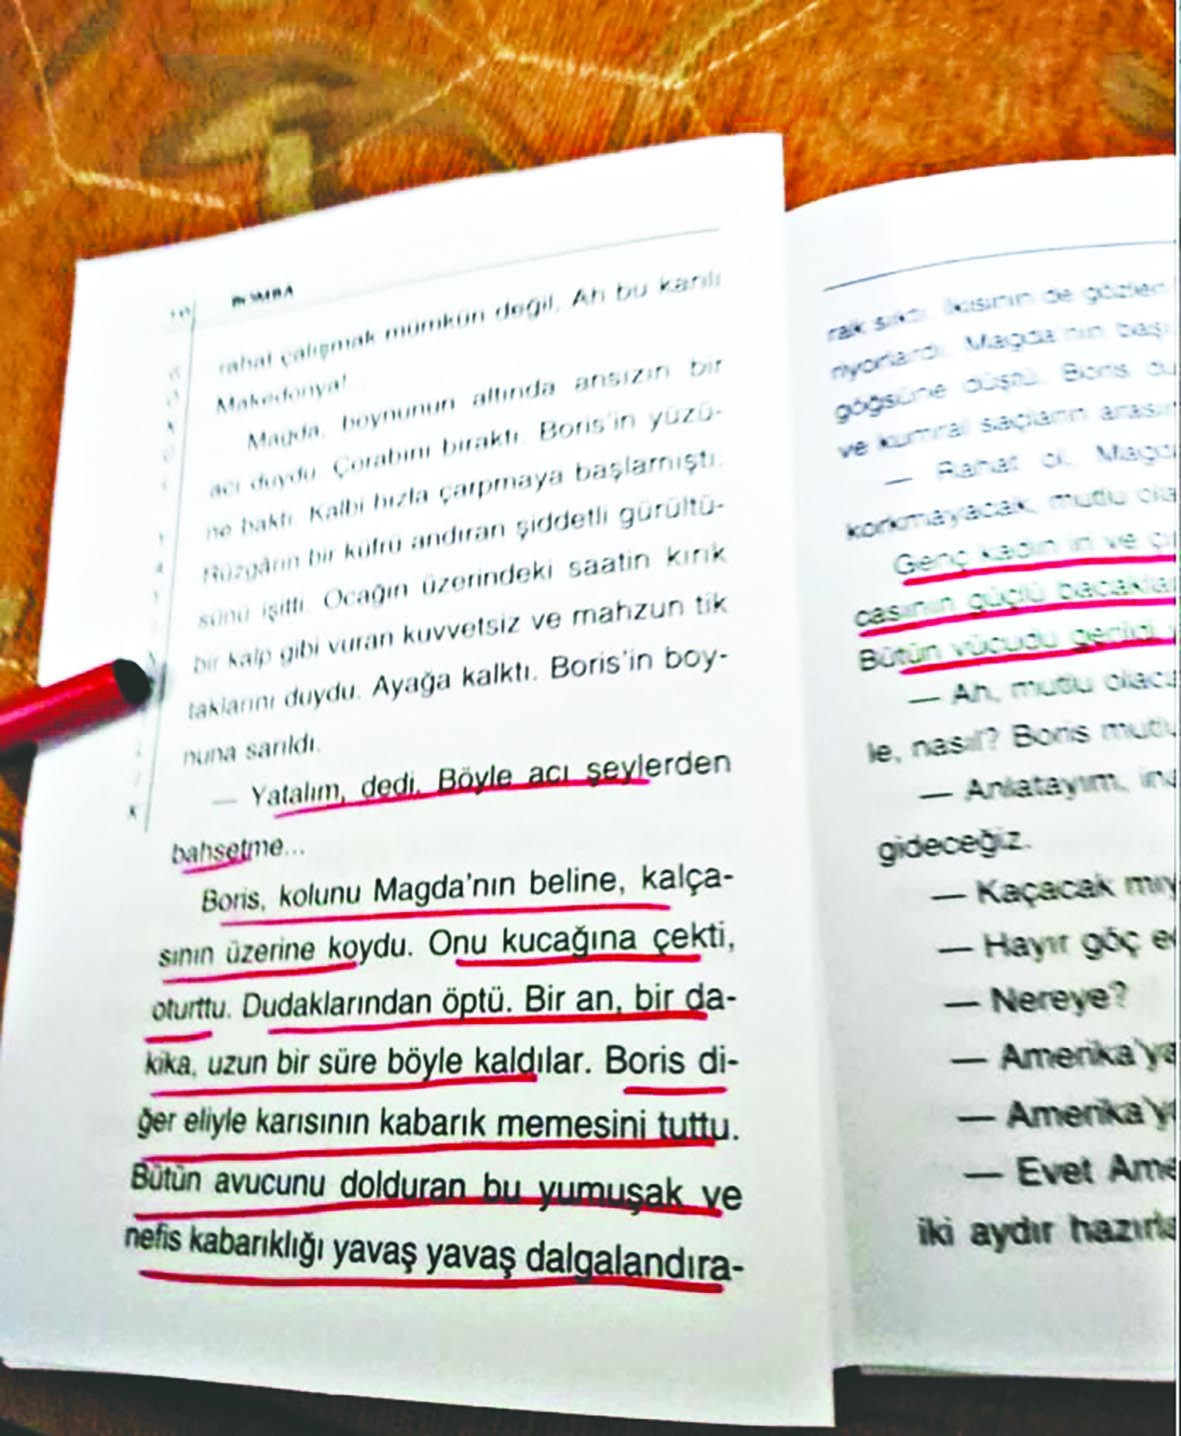 BOMBA
rahat çalışmak mümkün değil, Ah bu kanlı
Makedonya!...
Magda, boynunun altında ansızın bir
acı duydu. Çorabını bıraktı. Boris'in yüzü-
ne baktı. Kalbi hızla çarpmaya başlamıştı.
Rüzgârın bir küfrü andıran şiddetli gürültü-
sünü işitti. Ocağın üzerindeki saatin kırık
bir kalp gibi vuran kuvvetsiz ve mahzun tik
taklarını duydu. Ayağa kalktı. Boris'in boy-
nuna sarıldı.
— Yatalım, dedi, Böyle acı şeylerden
bahsetme...
Boris, kolunu Magda'nın beline, kalça-
sının üzerine koydu. Onu kucağına çekti,
oturttu. Dudaklarından öptü. Bir an, bir da-
kika, uzun bir süre böyle kaldılar. Boris di-
ğer eliyle karısının kabarık memesini tuttu.
Bütün avucunu dolduran bu yumuşak ve
nefis kabarıklığı yavaş yavaş dalgalandıra-
rak sıktı. İkisinin de gözleri
riyorlardı. Magda'nın başı
göğsüne düştü. Boris
ve kumral saçların
— Rahat ol, Magda
korkmayacak, mutlu
Genç kadın iri ve
casının güçlü
Bütün vücudu gerildi
— Ah, mutlu
le, nasıl? Boris
— Anlatayım,
gideceğiz.
— Kaçacak
— Hayır göç
— Nereye?
— Amerika'ya
— Amerika'ya
— Evet
iki aydır